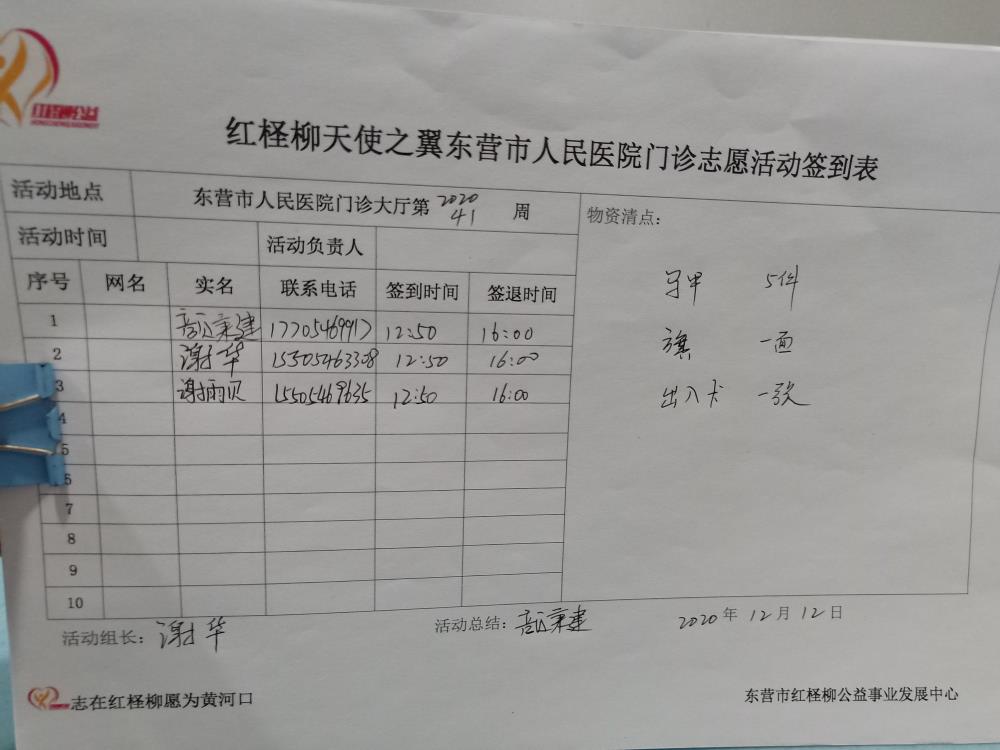 红柽柳公益
红柽柳天使之翼东营市人民医院门诊志愿活动签到表
活动地点 东营市人民医院门诊大厅第 2020 41 周
物资清点：
活动时间 活动负责人
序号 网名 实名 联系电话 签到时间 签退时间
1 秉建 17705469917 12:50 16:00
2 谢华 15505463308 12:50 16:00
3 谢雨贝 15505469635 12:50 16:00
4
5
6
7
8
9
10
马甲 5件
旗 一面
出入卡 一张
活动组长：谢华 活动总结：秉建 2020年12月12日
志在红柽柳愿为黄河口 东营市红柽柳公益事业发展中心